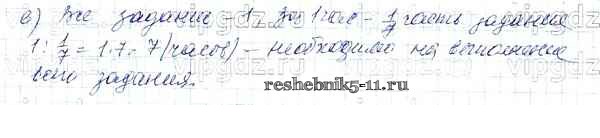 в) Все задание 1. За 1 час - 1/7 часть задания
1 : 1/7 = 1 · 7 = 7 (часов) - необходимо на выполнение
всего задания.
reshebnik5-11.ru